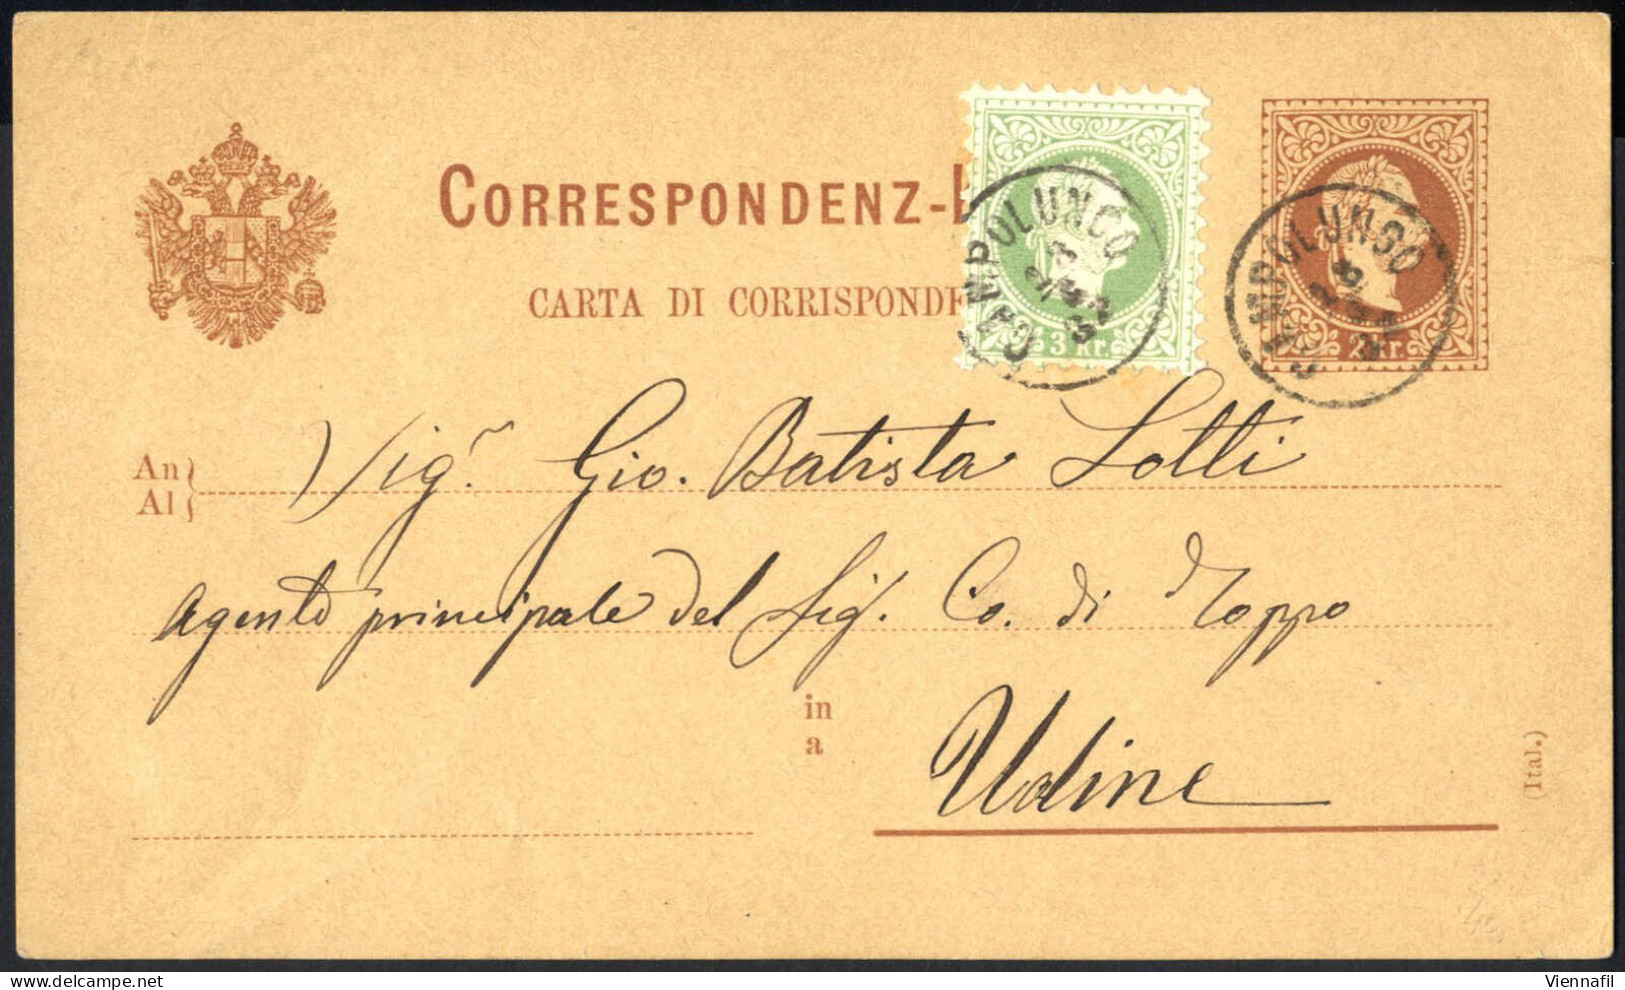 CORRESPONDENZ-
CARTA DI CORRISPONDE
3 kr.
CAMPOLUNGO
2 kr.
CAMPOLUNGO
An
Al
Sigr. Gio. Batista Lotti
Agente principale del Sig. Co. di Toppo
in
a
Udine
(Ital.)
Viennafil